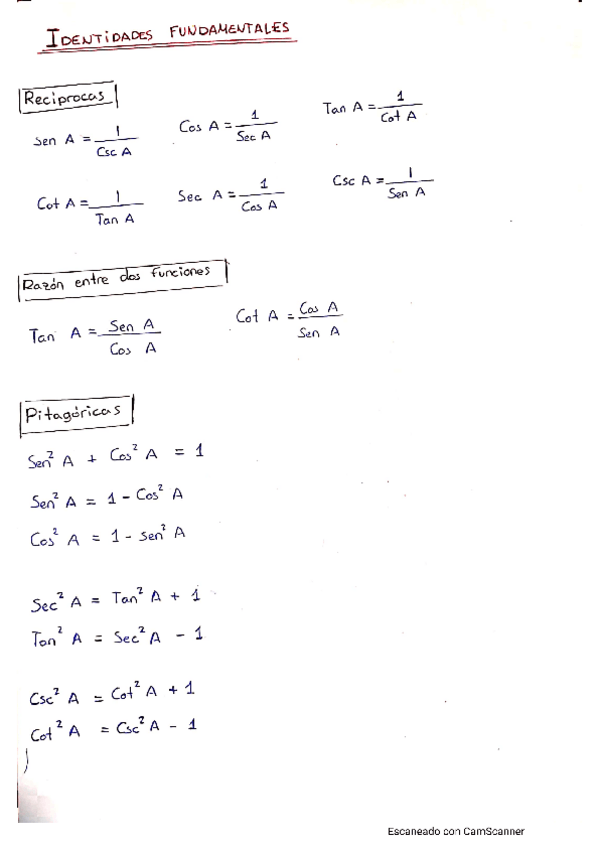 IDENTIDADES FUNDAMENTALES
Reciprocas
sen A = 1/Csc A    Cos A = 1/Sec A    Tan A = 1/Cot A
Cot A = 1/Tan A    Sec A = 1/Cos A    Csc A = 1/Sen A
Razón entre dos funciones
Tan A = Sen A/Cos A    Cot A = Cos A/Sen A
Pitagóricas
Sen² A + Cos² A = 1
Sen² A = 1 - Cos² A
Cos² A = 1 - sen² A
Sec² A = Tan² A + 1
Tan² A = Sec² A - 1
Csc² A = Cot² A + 1
Cot² A = Csc² A - 1
Escaneado con CamScanner